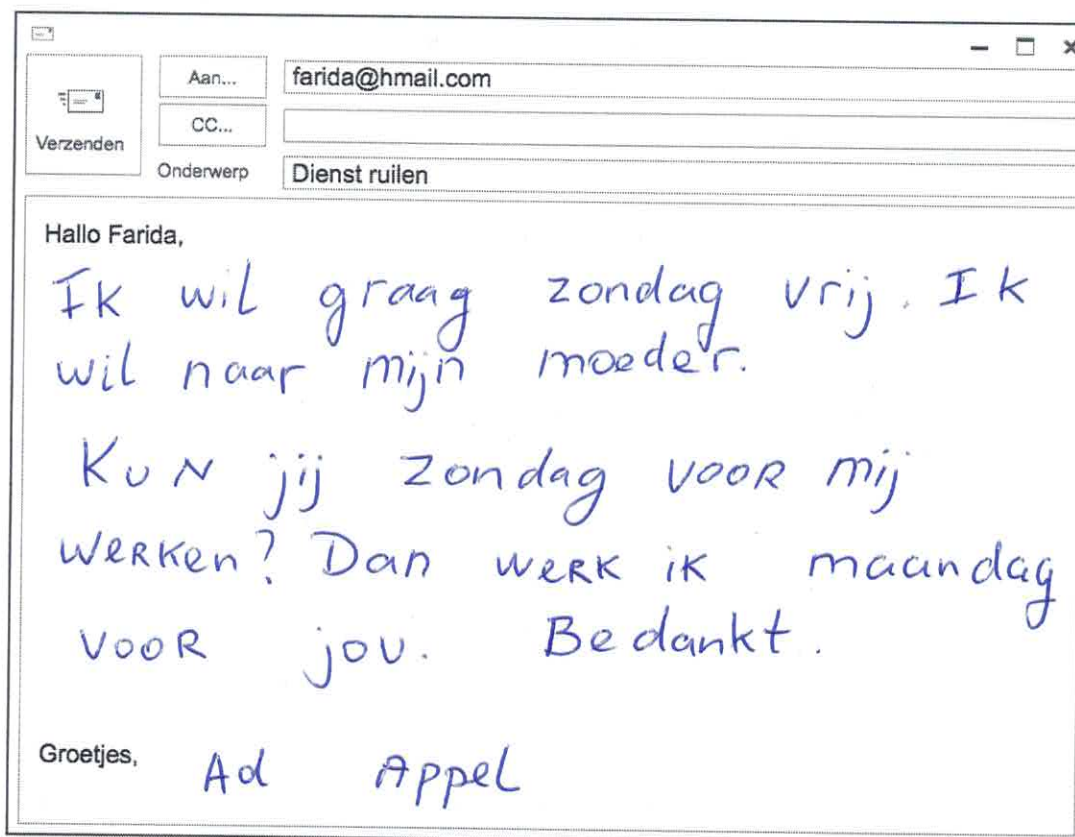 Aan... farida@hmail.com
CC...
Verzenden
Onderwerp Dienst ruilen
Hallo Farida,
Ik wil graag zondag vrij. Ik
wil naar mijn moeder.
Kun jij zondag voor mij
werken? Dan werk ik maandag
voor jou. Bedankt.
Groetjes, Ad Appel